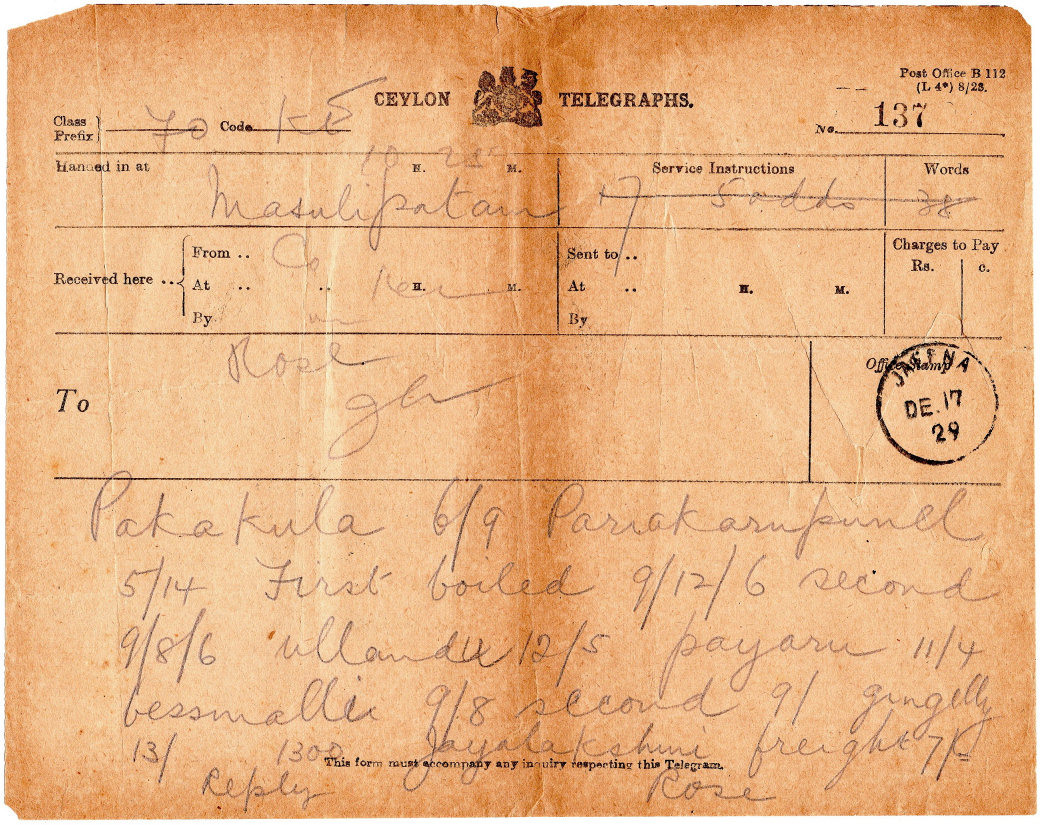 Post Office B 112
(L 4*) 8/28.
CEYLON TELEGRAPHS.
Class Prefix } 70 Code KE
No. 137
Handed in at 10 H. M.
Service Instructions
Words
Masulipatam 5 adds 38
Received here .. { From .. Co
At .. .. H. M.
By
Sent to ..
At .. H. M.
By
Charges to Pay
Rs. c.
To
Rose
Office Stamp
JAFFNA
DE. 17
29
Pakakula 6/9 Pariakarupunel
5/14 First boiled 9/12/6 second
9/8/6 ullandu 12/5 payaru 11/4
bessmallii 9/8 second 9/ gingelly
13/ 1300 Jayalakshmi freight 7/-
This form must accompany any inquiry respecting this Telegram.
Reply Rose